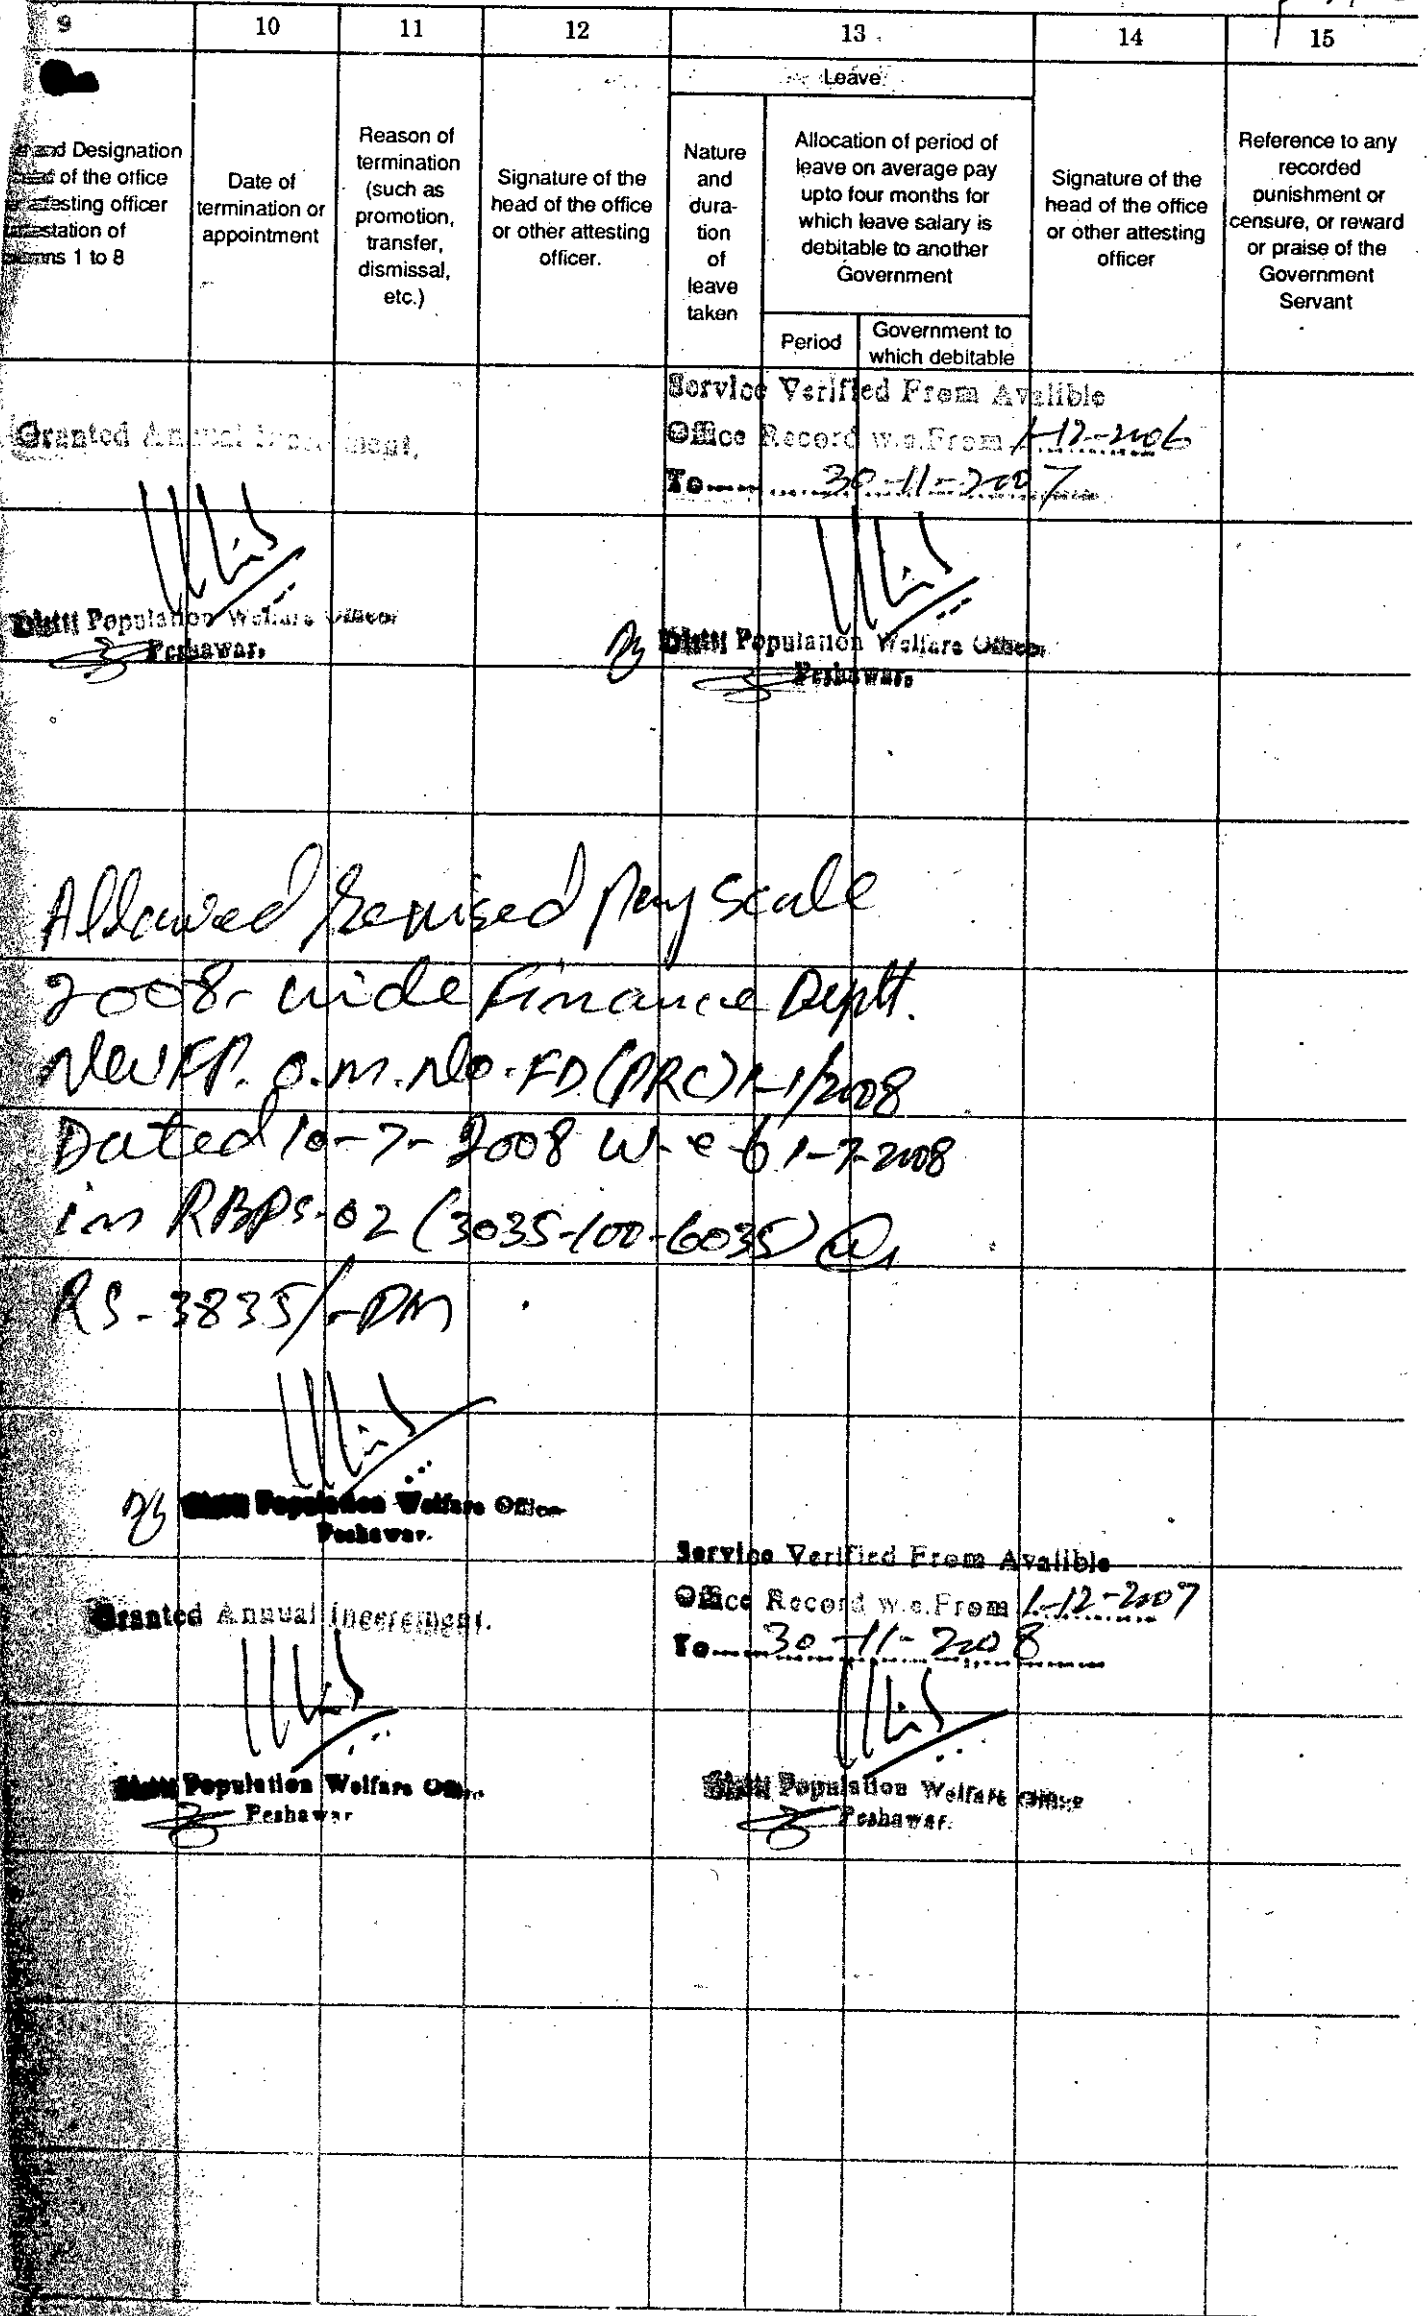 9 10 11 12 13 14 15
Leave
and Designation
of the office
attesting officer
attestation of
1 to 8
Date of
termination or
appointment
Reason of
termination
(such as
promotion,
transfer,
dismissal,
etc.)
Signature of the
head of the office
or other attesting
officer.
Nature
and
dura-
tion
of
leave
taken
Allocation of period of
leave on average pay
upto four months for
which leave salary is
debitable to another
Government
Period
Government to
which debitable
Signature of the
head of the office
or other attesting
officer
Reference to any
recorded
punishment or
censure, or reward
or praise of the
Government
Servant
Granted Annual
Service Verified From Avalible
Office Record w.e.From 1-12-2006
To 30-11-2007
Distt Population Welfare Officer
Peshawar.
Distt Population Welfare Officer
Peshawar.
Allowed Revised Pay Scale
2008- vide Finance Deptt.
NWFP. O.M. No. FD (PRC) 1-1/2008
Dated 10-7-2008 w-e-f 1-7-2008
in RBPS-02 (3035-100-6035) @
RS-3835/-PM
Distt Population Welfare Office
Peshawar.
Granted Annual Incerement.
Service Verified From Avalible
Office Record w.e.From 1-12-2007
To 30-11-2008
Distt Population Welfare
Peshawar
Distt Population Welfare Office
Peshawar.